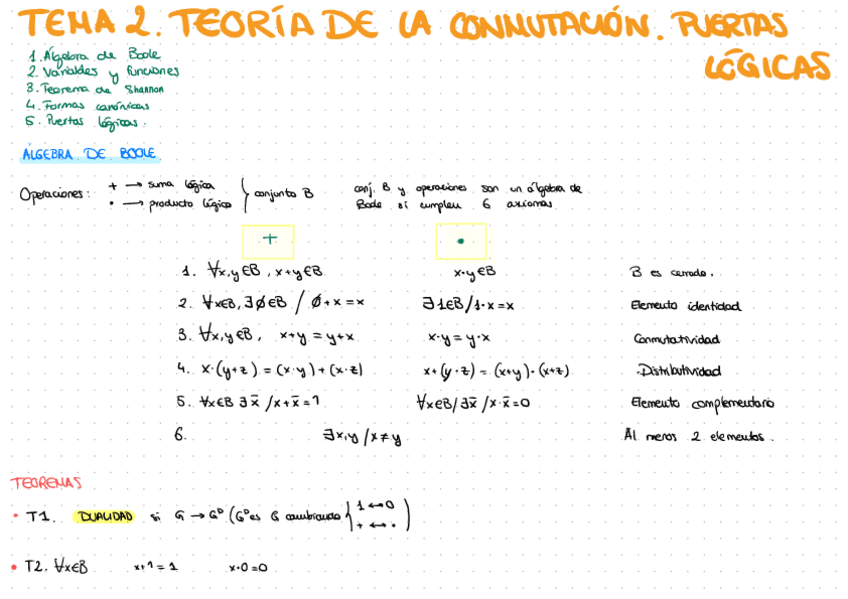 TEMA 2. TEORÍA DE LA CONMUTACIÓN. PUERTAS LÓGICAS
1. Álgebra de Boole
2. Variables y funciones
3. Teorema de Shannon
4. Formas canónicas
5. Puertas lógicas.
ÁLGEBRA DE BOOLE
Operaciones: + → suma lógica
• → producto lógico } conjunto B
conj. B y operaciones son un álgebra de
Boole si cumplen 6 axiomas
+ •
1. ∀x,y∈B, x+y∈B x·y∈B B es cerrado.
2. ∀x∈B, ∃∅∈B / ∅+x=x ∃1∈B/1·x=x Elemento identidad
3. ∀x,y∈B, x+y=y+x x·y=y·x Conmutatividad
4. x·(y+z)=(x·y)+(x·z) x+(y·z)=(x+y)·(x+z) Distributividad
5. ∀x∈B ∃x̄ /x+x̄=1 ∀x∈B/∃x̄ /x·x̄=0 Elemento complementario
6. ∃x,y /x≠y Al menos 2 elementos.
TEOREMAS
• T1. DUALIDAD si G→Gᴰ (Gᴰ es G cambiando { 1↔0
+↔· )
• T2. ∀x∈B x+1=1 x·0=0